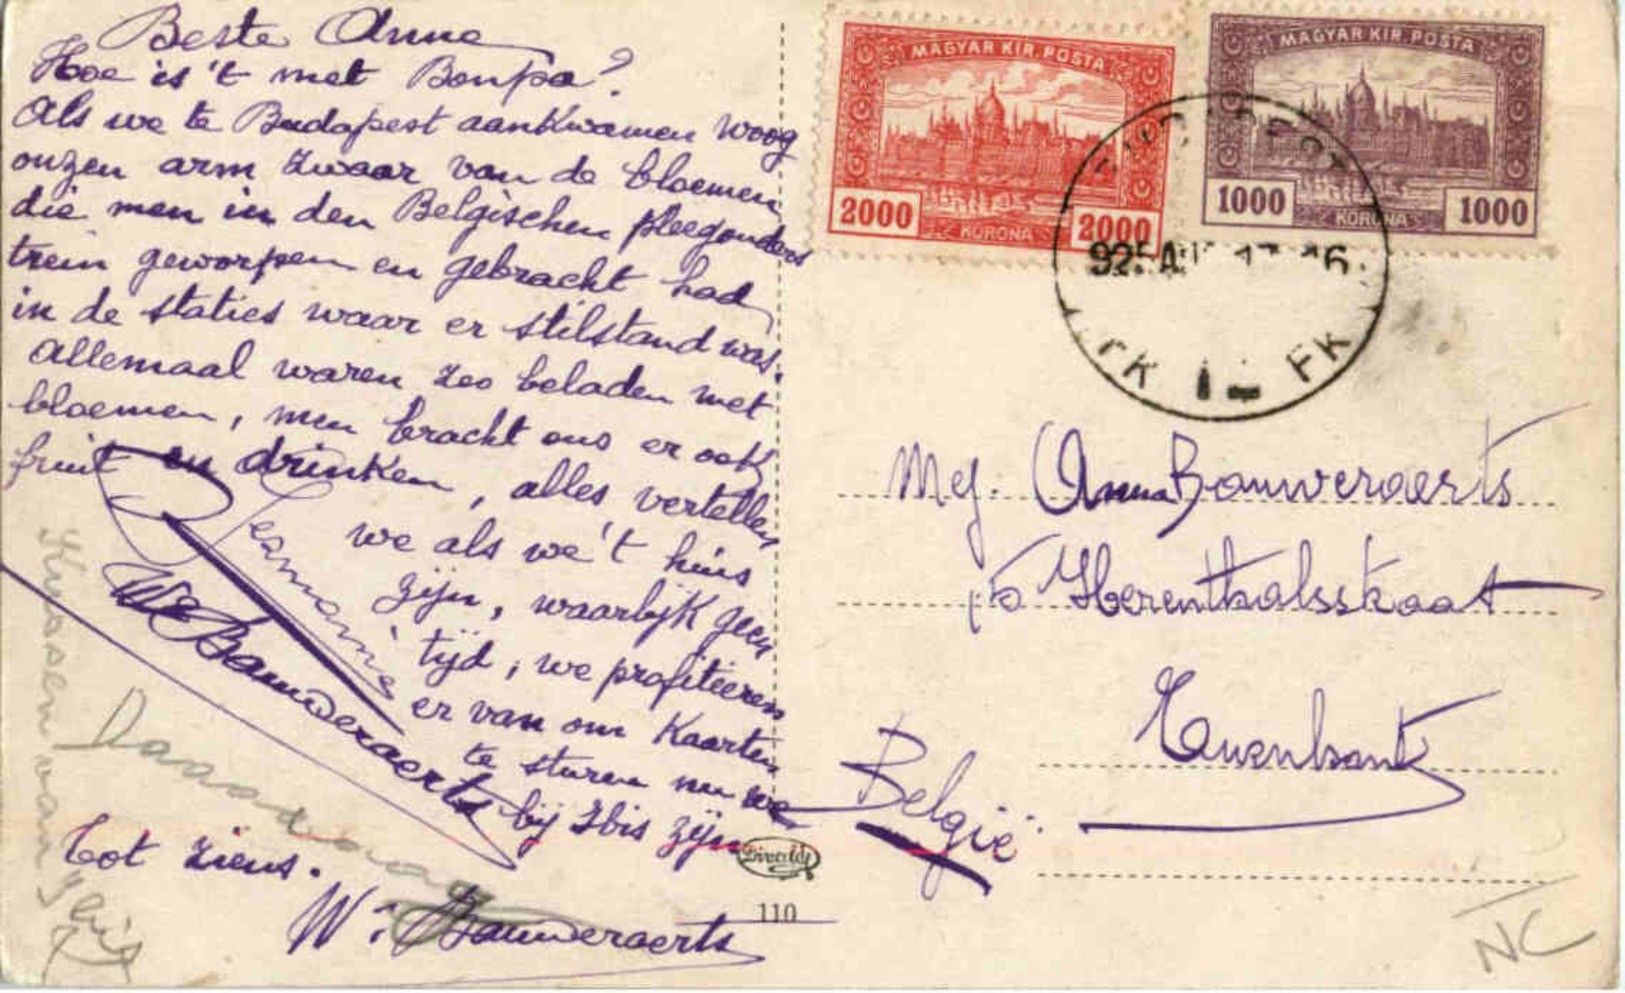 Beste Anna
Hoe is 't met Bonpa?
Als we te Budapest aankwamen woog
onzen arm zwaar van de bloemen
die men in den Belgischen pleegouders
trein geworpen en gebracht had
in de staties waar er stilstand was.
Allemaal waren zoo beladen met
bloemen, men bracht ons er ook
fruit en drinken, alles vertellen
we als we 't huis
zijn, waarlijk geen
tijd, we profiteeren
er van om Kaarten
te sturen nu we
bij Ibis zijn
Tot ziens.
W. Bauweraerts
Jeanname
We Bauweraerts
MAGYAR KIR. POSTA
2000 KORONA 2000
MAGYAR KIR. POSTA
1000 KORONA 1000
925
Mej. Anna Bauweraerts
Herenthalsstraat
België
110
NC